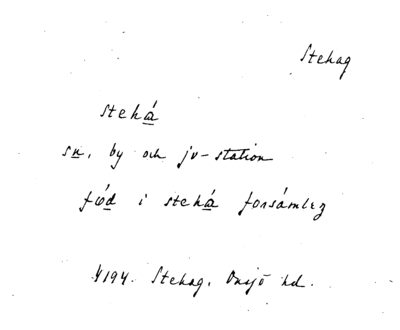 Stehag
stehá
sn, by och jv-station
fǿd i stehá forsámleg
4194. Stehag, Onsjö hd.